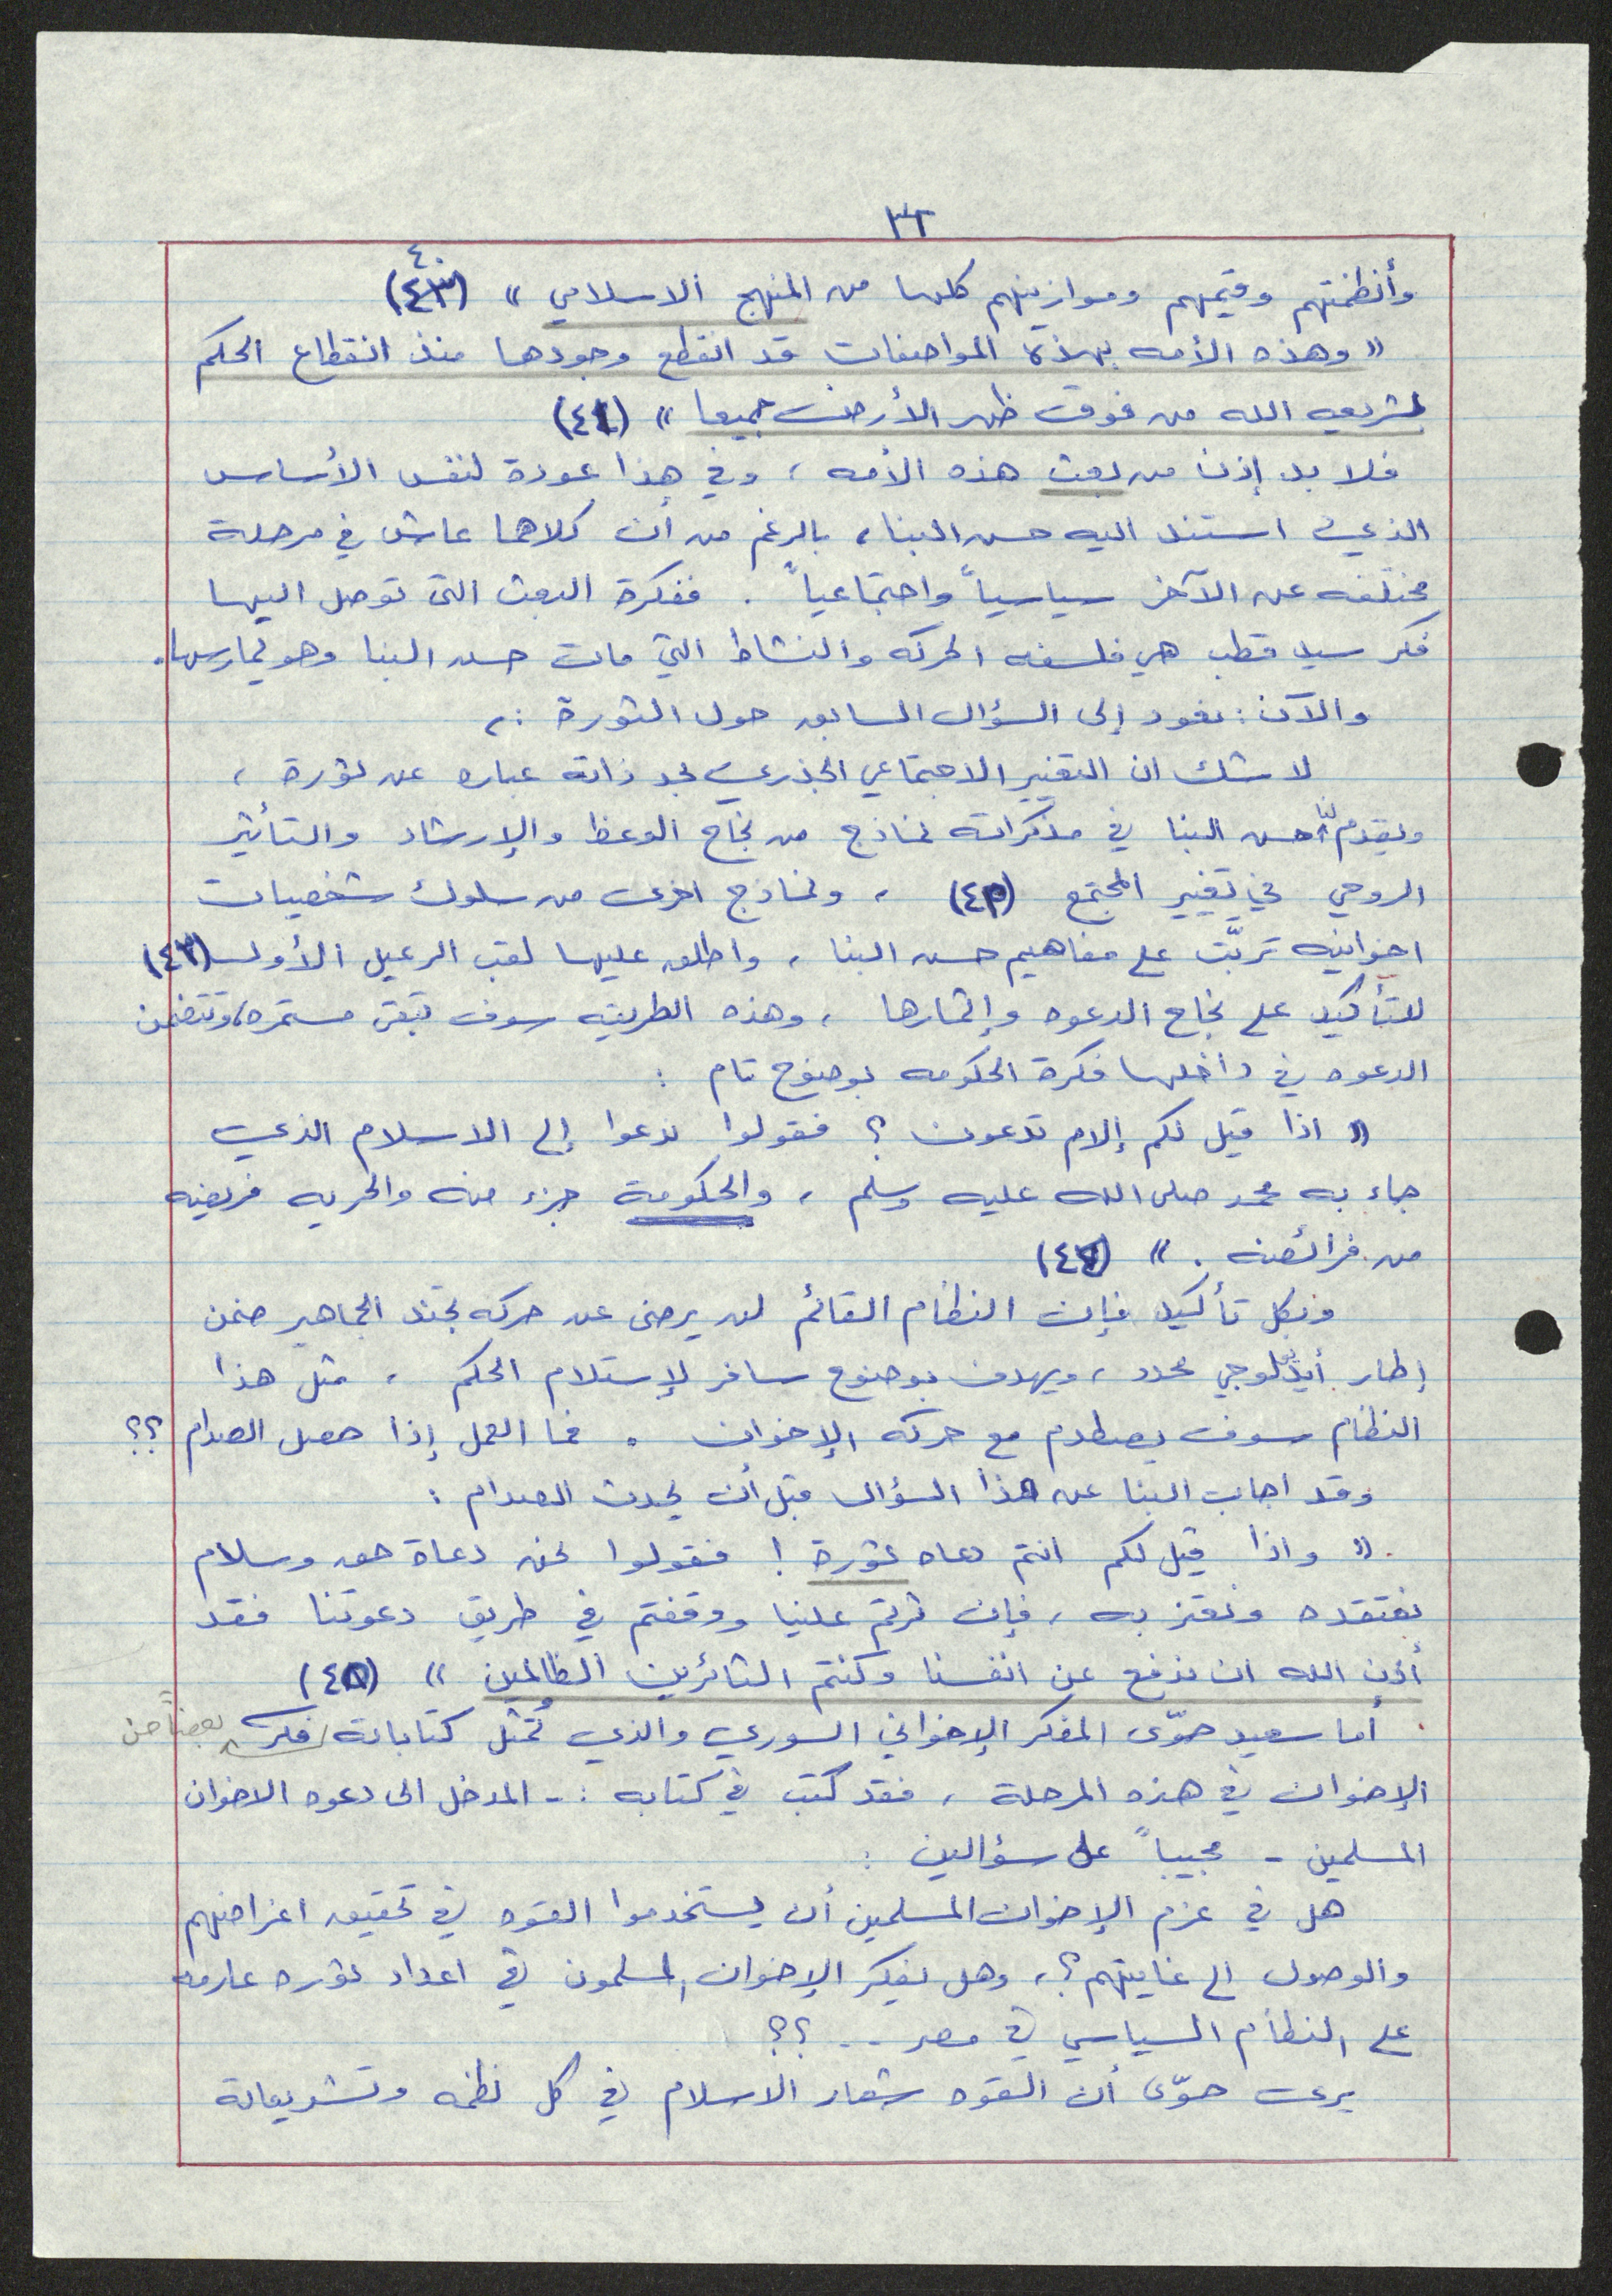 ٣٢
٤٠
وأنظمتهم وقيمهم وموازينهم كلها من المنهج الاسلامي » (٤٣)
« وهذه الأمه بهذه المواصفات قد انقطع وجودها منذ انقطاع الحكم
بشريعه الله من فوق ظهر الأرض جميعا » (٤١)
فلا بد إذن من بعث هذه الأمه ، وفي هذا عودة لنفس الأساس
الذي استند اليه حسن البنا ، بالرغم من أن كلاهما عاش في مرحلة
مختلفه عن الآخر سياسياً واجتماعياً . ففكرة البعث التي توصل اليها
فكر سيد قطب هي فلسفه الحركه والنشاط التي مات حسن البنا وهو يمارسها .
والآن : نعود إلى السؤال السابق حول الثورة : ،
لا شك ان التغيير الاجتماعي الجذري بحد ذاته عباره عن ثورة ،
ويقدم لنا حسن البنا في مذكراته نماذج من نجاح الوعظ والإرشاد والتأثير
الروحي في تغيير المجتمع (٤٢) ، ونماذج اخرى من سلوك شخصيات
اخوانيه تربّت على مفاهيم حسن البنا ، واطلق عليها لقب الرعيل الأول (٤٣)
للتأكيد على نجاح الدعوه وإثمارها ، وهذه الطريقه سوف تبقى مستمره، وتتضمن
الدعوه في داخلها فكرة الحكومه بوضوح تام :
« اذا قيل لكم إلام تدعون ؟ فقولوا ندعوا إلى الاسلام الذي
جاء به محمد صلى الله عليه وسلم ، والحكومة جزء منه والحريه فريضه
من فرائضه . » (٤٤)
وبكل تأكيد فإن النظام القائم لن يرضى عن حركه تجند الجماهير ضمن
إطار أيدلوجي محدد ، ويهدف بوضوح سافر لإستلام الحكم ، مثل هذا
النظام سوف يصطدم مع حركه الإخوان . فما العمل إذا حصل الصدام ؟؟
وقد اجاب البنا عن هذا السؤال قبل أن يحدث الصدام :
« واذا قيل لكم انتم دعاه ثورة ! فقولوا نحن دعاة حق وسلام
نعتقده ونعتز به ، فإن ثرتم علينا ووقفتم في طريق دعوتنا فقد
أذن الله ان ندفع عن انفسنا وكنتم الثائرين الظالمين » (٤٥)
أما سعيد حوّى المفكر الإخواني السوري والذي تُمثل كتاباته فكر بعضاً من
الإخوان في هذه المرحلة ، فقد كتب في كتابه : - المدخل الى دعوه الاخوان
المسلمين - مجيباً على سؤالين :
هل في عزم الإخوان المسلمين أن يستخدموا القوه في تحقيق اغراضهم
والوصول الى غايتهم ؟ ، وهل يفكر الإخوان المسلمون في اعداد ثوره عارمه
على النظام السياسي في مصر .. ؟؟
يرى حوّى أن القوه شعار الاسلام في كل نظمه وتشريعاته